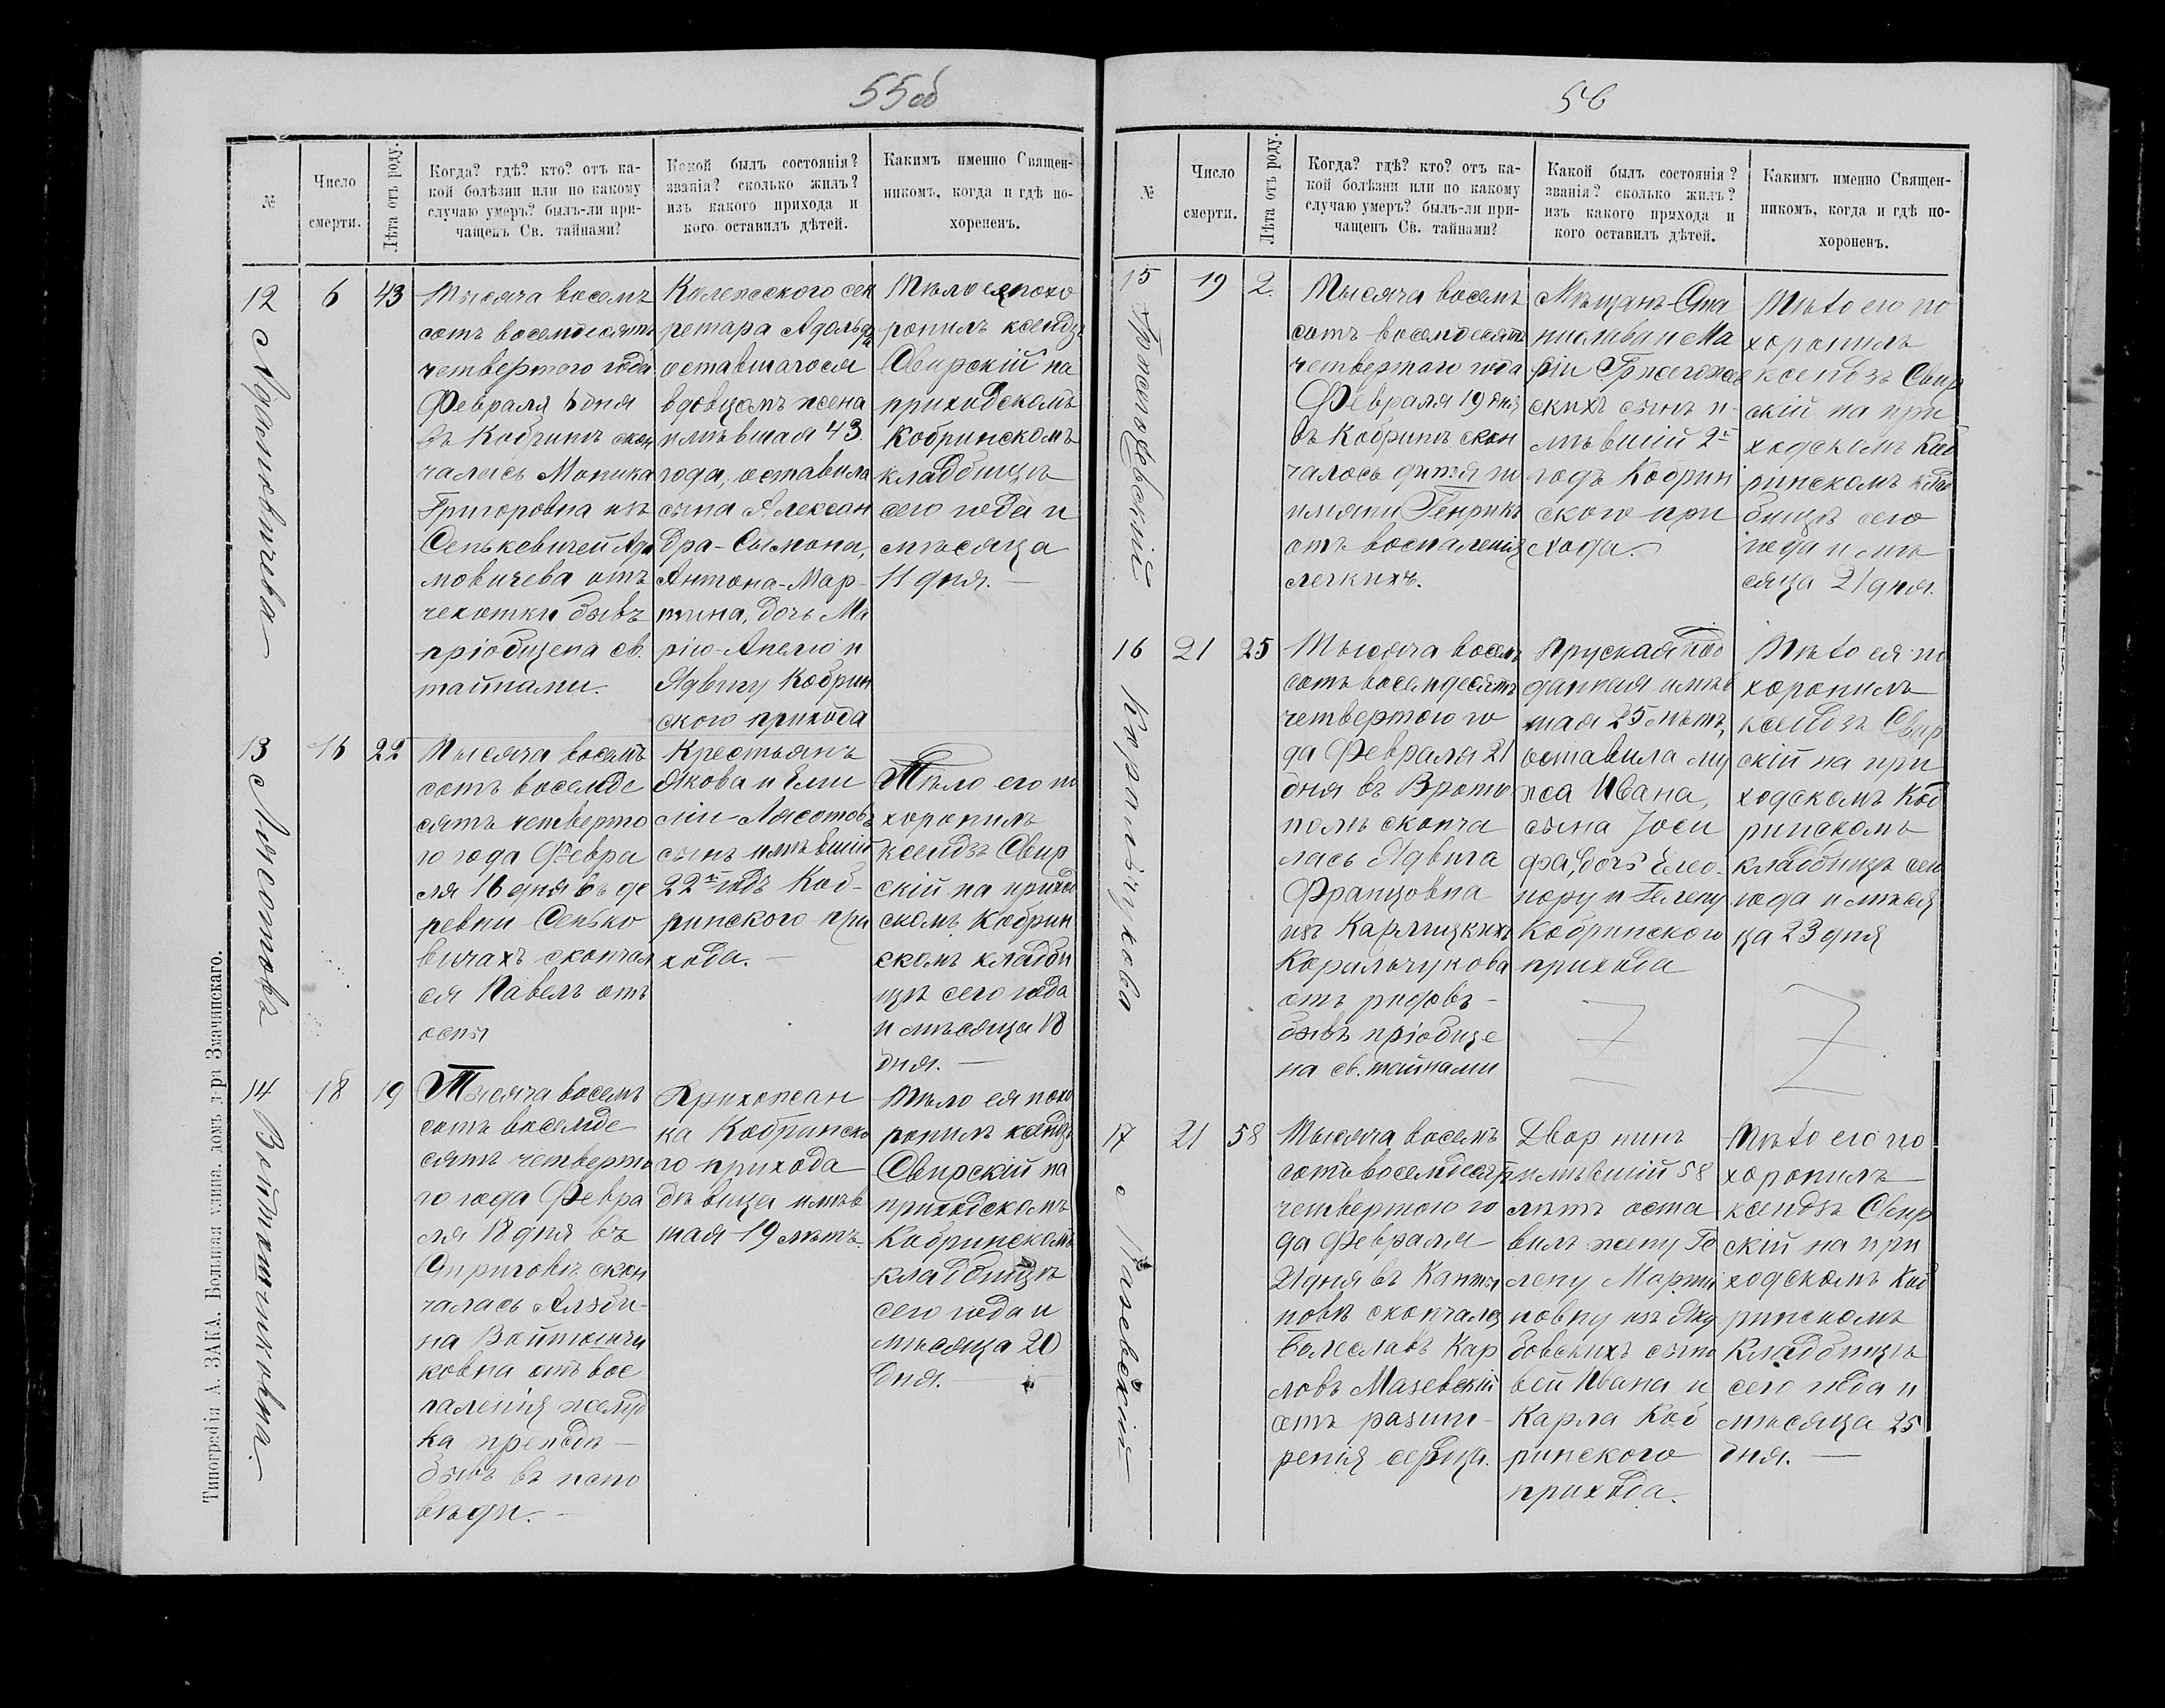 55об
№
Число
смерти.
Лѣта отъ роду.
Когда? гдѣ? кто? отъ ка-
кой болѣзни или по какому
случаю умеръ? былъ-ли при-
чащенъ Св. тайнами?
Какой былъ состоянія?
званія? сколько жилъ?
изъ какого прихода и
кого оставилъ дѣтей.
Какимъ именно Священ-
никомъ, когда и гдѣ по-
хороненъ.
12
Адамовичева
6
43
Тысяча восемъ
сотъ восемдесятъ
четвертого года
Февраля 6 дня
въ Кобринѣ скон
чалась Моника
Григоровна изъ
Сенькевичей Ада
мовичева отъ
чехотки бывъ
пріобщена св.
тайнами.
Колежского сек
ретара Адольфа
оставшагося
вдовцомъ жена
имѣвшая 43
года, оставила
сына Алексан
дра-Сымона,
Антона-Мар-
тина, дочь Ма
рію-Анелю и
Ядвигу Кобрин
ского прихода
Тѣло ея похо
ронилъ ксендзъ
Свирскій на
приходскомъ
Кобринскомъ
кладбищѣ
сего года и
мѣсяца
11 дня.—
13
Лясотовъ
16
22
Тысяча восемъ
сотъ восемде
сятъ четверто
го года Февра
ля 16 дня въ де
ревни Сенько
вичахъ скончал
ся Павелъ отъ
оспы
Крестьянъ
Якова и Ели
міи Лясотовъ
сынъ имѣвшій
22й годъ Коб-
ринского при
хода.—
Тѣло его по
хоронилъ
ксендзъ Свир
скій на приход
скомъ Кобрин
скомъ кладби
щѣ сего года
и мѣсяца 18
дня.—
14
Войткничиковна.
18
19
Тысяча восемъ
сотъ восемде
сятъ четверто
го года Февра
ля 18 дня въ
скон
чалась Альби-
на Войткничи
ковна отъ вос
паленія желуд
ка прежде—
бывъ въ испо
вѣди.—
Прихожан
ка Кобринско
го прихода
дѣвица имѣв
шая 19 лѣтъ.
Тѣло ея похо
ронилъ ксендзъ
Свирскій на
приходскомъ
Кобринскомъ
кладбищѣ
сего года и
мѣсяца 20
дня.—
Типографія А. ЗАКА. Большая улица. домъ д-ра Змачинскаго.
56
№
Число
смерти.
Лѣта отъ роду.
Когда? гдѣ? кто? отъ ка-
кой болѣзни или по какому
случаю умеръ? былъ-ли при-
чащенъ Св. тайнами?
Какой былъ состоянія?
званія? сколько жилъ?
изъ какого прихода и
кого оставилъ дѣтей.
Какимъ именно Священ-
никомъ, когда и гдѣ по-
хороненъ.
15
Гржегожевскій
19
2.
Тысяча восемъ
сотъ восемдесятъ
четвертаго года
Февраля 19 дня
въ Кобринѣ скон
чалось дитя по
имяни Генрикъ
отъ воспаленія
легкихъ.
Мѣщанъ Ста
ниславы и Ма
ріи Гржегожев
скихъ сынъ и-
мѣвшій 2й
годъ Кобрин
ского при
хода.
Тѣло его по
хоронилъ
ксендзъ Свир
скій на при
ходскомъ Коб
ринскомъ клад
бищѣ сего
года и мѣ
сяца 21 дня.
16
Коральчукова
21
25
Тысяча восемъ
сотъ восемдесятъ
четвертого го
да Февраля 21
дня въВрото
полѣ сконча
лась Ядвига
Францовна
изъ Карлицкихъ
Коральчукова
отъ родовъ-
бывъ пріобще
на св. тайнами
Пруская под
данная имѣв
шая 25 лѣтъ,
оставила му
жа Ивана,
сына Іоси
фа, дочъ Елео-
нору и Гелену
Кобринского
прихода
Тѣло ея по
хоронилъ
ксендзъ Свир
скій на при
ходскомъ Коб
ринскомъ
кладбищѣ сего
года и мѣся
ца 23 дня
17
Мазевскій
21
58
Тысяча восемъ
сотъ восемдесятъ
четвертого го
да Февраля
21 дня въ Канты
новѣ скончался
Болеславъ Кар
ловъ Мазевскій
отъ разши-
ренія сердца.
Дворнинъ
имѣвшій 58
лѣтъ оста
вилъ жену Ге
лену Марти
новну изъ Яку
бовскихъ сыно
вей Ивана и
Карла Коб
ринского
прихода.
Тѣло его по
хоронилъ
ксендзъ Свир
скій на при
ходскомъ Коб
ринскомъ
Кладбищѣ
сего года и
мѣсяца 25
дня.—